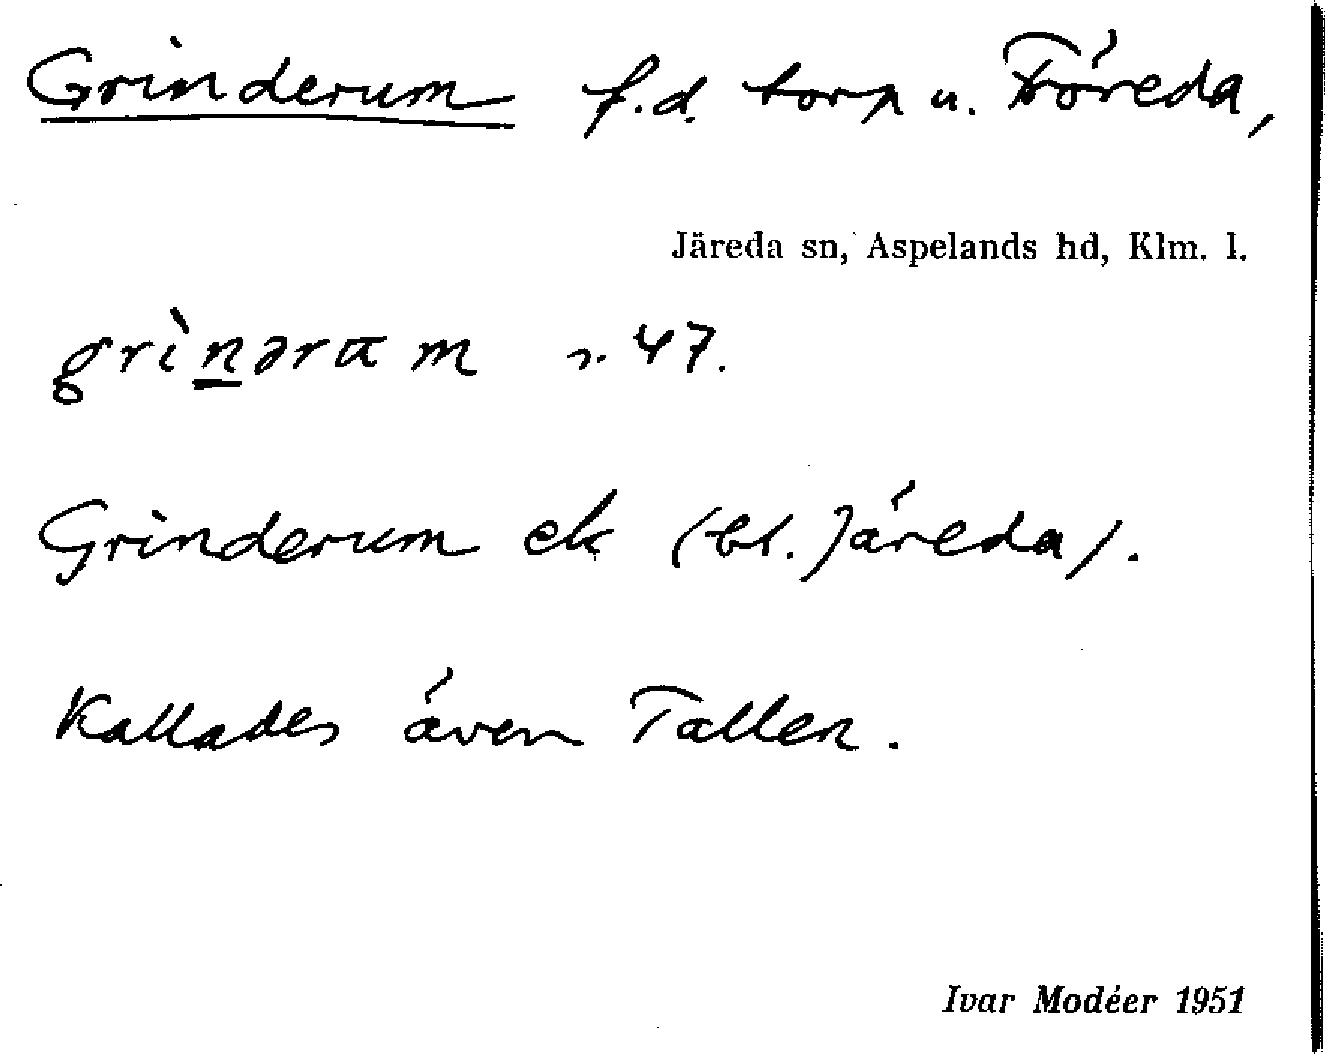 Grinderum f.d. torp u. Fröreda,
Järeda sn, Aspelands hd, Klm. l.
grìn̲əram 47.
Grinderum ek (bl. Järeda).
Kallades även Tallen.
Ivar Modéer 1951